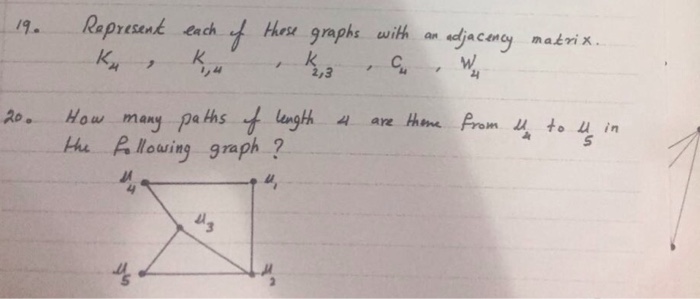 19. Rapresent each of these graphs with an adjacency matrix.
K4 , K1,4 , K2,3 , C4 , W4
20. How many paths of length 4 are there from u4 to u5 in
the following graph ?
u4 u1
u3
u5 u2